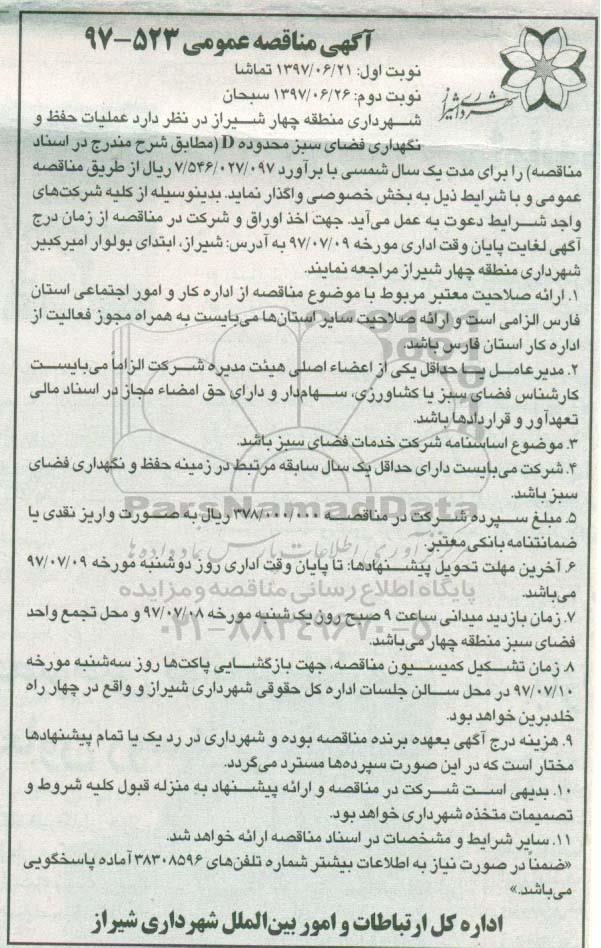 آگهی مناقصه عمومی ۵۲۳-۹۷
نوبت اول: ۱۳۹۷/۰۶/۲۱ تماشا
نوبت دوم: ۱۳۹۷/۰۶/۲۶ سبحان
شهرداری شیراز
شهرداری منطقه چهار شیراز در نظر دارد عملیات حفظ و
نگهداری فضای سبز محدوده D (مطابق شرح مندرج در اسناد
مناقصه) را برای مدت یک سال شمسی با برآورد ۷/۵۴۶/۰۲۷/۰۹۷ ریال از طریق مناقصه
عمومی و با شرایط ذیل به بخش خصوصی واگذار نماید. بدینوسیله از کلیه شرکت‌های
واجد شرایط دعوت به عمل می‌آید. جهت اخذ اوراق و شرکت در مناقصه از زمان درج
آگهی لغایت پایان وقت اداری مورخه ۹۷/۰۷/۰۹ به آدرس: شیراز، ابتدای بولوار امیرکبیر
شهرداری منطقه چهار شیراز مراجعه نمایند.
۱. ارائه صلاحیت معتبر مربوط با موضوع مناقصه از اداره کار و امور اجتماعی استان
فارس الزامی است و ارائه صلاحیت سایر استان‌ها می‌بایست به همراه مجوز فعالیت از
اداره کار استان فارس باشد.
۲. مدیرعامل یا حداقل یکی از اعضاء اصلی هیئت مدیره شرکت الزاماً می‌بایست
کارشناس فضای سبز یا کشاورزی، سهام‌دار و دارای حق امضاء مجاز در اسناد مالی
تعهدآور و قراردادها باشد.
۳. موضوع اساسنامه شرکت خدمات فضای سبز باشد.
۴. شرکت می‌بایست دارای حداقل یک سال سابقه مرتبط در زمینه حفظ و نگهداری فضای
سبز باشد.
ParsNamadData
۵. مبلغ سپرده شرکت در مناقصه ۳۷۸/۰۰۰/۰۰۰ ریال به صورت واریز نقدی یا
ضمانتنامه بانکی معتبر.
۶. آخرین مهلت تحویل پیشنهادها: تا پایان وقت اداری روز دوشنبه مورخه ۹۷/۰۷/۰۹
می‌باشد.
پایگاه اطلاع رسانی مناقصه و مزایده
۷. زمان بازدید میدانی ساعت ۹ صبح روز یک شنبه مورخه ۹۷/۰۷/۰۸ و محل تجمع واحد
فضای سبز منطقه چهار می‌باشد.
۰۲۱-۸۸۳۴۹۶۷۰-۵
۸. زمان تشکیل کمیسیون مناقصه، جهت بازگشایی پاکت‌ها روز سه‌شنبه مورخه
۹۷/۰۷/۱۰ در محل سالن جلسات اداره کل حقوقی شهرداری شیراز و واقع در چهار راه
خلدبرین خواهد بود.
۹. هزینه درج آگهی بعهده برنده مناقصه بوده و شهرداری در رد یک یا تمام پیشنهادها
مختار است که در این صورت سپرده‌ها مسترد می‌گردد.
۱۰. بدیهی است شرکت در مناقصه و ارائه پیشنهاد به منزله قبول کلیه شروط و
تصمیمات متخذه شهرداری خواهد بود.
۱۱. سایر شرایط و مشخصات در اسناد مناقصه ارائه خواهد شد.
«ضمناً در صورت نیاز به اطلاعات بیشتر شماره تلفن‌های ۳۸۳۰۸۵۹۶ آماده پاسخگویی
می‌باشد.»
اداره کل ارتباطات و امور بین‌الملل شهرداری شیراز